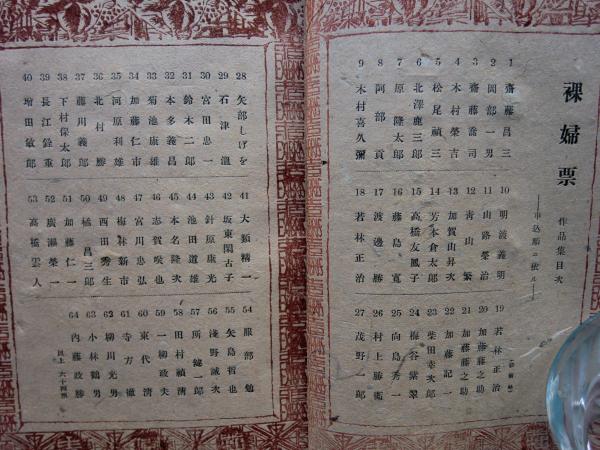 裸婦票 作品集目次
──申込順ニ依ル──
1 齋藤昌三
2 岡部一男
3 齋藤喬司
4 木村榮吉
5 松尾禎三
6 北澤鹿三郎
7 原隆太郎
8 阿部貢
9 木村喜久彌
10 明渡義明
11 山路榮治
12 青山繁
13 加賀山昇次
14 芳本倉太郎
15 高橋友鳳子
16 藤島寛
17 渡邊勝
18 若林正治
19 若林正治
20 加藤藤之助
21 加藤藤之助
22 加藤記一
23 柴田幸次郎
24 梅谷紫翠
25 向島秀一
26 村上勝衛
27 茂野一郎
28 矢部しげを
29 石津溫
30 宮田忠一
31 鈴木二郎
32 本多義昌
33 菊池康雄
34 加藤仁市
35 河原利雄
36 北村勝
37 藤川義郎
38 下村保太郎
39 長江銓重
40 增田敏郎
41 大類精一
42 坂東閑古子
43 針原康光
44 池田道雄
45 本名隆次
46 志賀咲次
47 宮川忠弘
48 梅林新市
49 西田秀生
50 橘昌三郎
51 加藤仁一
52 廣瀬榮一
53 高橋雲人
54 服部勉
55 矢島哲也
56 淺野誠次
57 所健二郎
58 田村禎清
59 一柳政夫
60 東代清
61 寺方徹
62 柳川光男
63 小林鶴男
64 內藤政勝
以上 六十四票